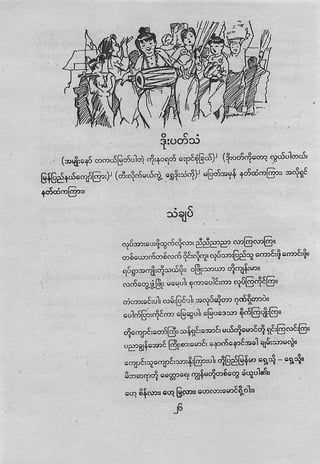 ဒိုးပတ်သံ
(အမျိုးနော် တကယ်မြတ်ပါတဲ့ ကိုးနဝရတ် ရောင်စုံခြယ်)၊ (ဒိုးပတ်ကိုတော့ လွယ်ပါတယ်၊
မြန်ပြည်နယ်ကျော်ကြား)၊ (တီးလိုက်မယ်ကွဲ့ ရွှေဒိုးသံကို)၊ မပြတ်အမှန် နတ်ထံကကြား၊ အလိုရှင်
နတ်ထံကကြား။
သံချပ်
လုပ်အားပေးဖို့ထွက်လို့လာ၊ ညီညီညာညာ လာကြလာကြ။
တစ်ယောက်တစ်လက် ဝိုင်းလို့ကူ၊ လုပ်သားပြည်သူ ကောင်းဖို့ ကောင်းဖို့။
ရပ်ရွာအကျိုးတို့သယ်ပိုး၊ ဝဖြိုးသာယာ တို့ကျန်းမာ။
လက်တွေ့ဖွံ့ဖြိုး မမေ့ပါ၊ စုကာပေါင်းကာ လုပ်ကြကိုင်ကြ။
တံတားခင်းပါ၊ လမ်းပြင်ပါ၊ အလုပ်ဆိုတာ ဂုဏ်ရှိတာပဲ။
ပေါက်ပြားကိုင်ကာ မြေဆွပါ၊ မြေပဒေသာ စိုက်ကြပျိုးကြ။
တို့ကျောင်းတော်ကြီး၊ သန့်ရှင်းအောင်၊ မယ်တို့မောင်တို့ ရှင်းကြလင်းကြ။
ပညာချွန်အောင် ကြိုးစားမောင်၊ နောက်နောင်အခါ ချမ်းသာမလွဲ။
ကျောင်းသူကျောင်းသားနိုးကြားပါ၊ တို့ပြည်မြန်မာ ရှေ့သို့ – ရှေ့သို့။
မိဘဆရာတို့ မေတ္တာရေ၊ ကျွန်မတို့တစ်တွေ ခံယူပါ၏။
ဟေ့ စိန်လား၊ ဟေ့ မြလား၊ ဟေလားမောင်ရို့ဝါး။
၂၆